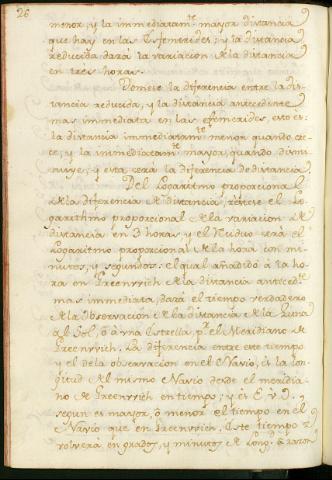 26
menor, y la immediatamte mayor distancia
que hay en las Efemerides; y la distancia
reducida, dará la variacion de la distancia
en tres horas.
Tomese la diferencia entre la dis-
tancia reducida, y la distancia antecedente
mas immediata en las efemerides, esto es:
la distancia immediatamte menor quando cre-
ce, y la immediatamte mayor, quando dismi-
nuye; y esta será la diferencia de distancia.
Del Logaritmo proporcional
de la diferencia de distancia, restese el Lo-
garithmo proporcional de la variacion de
distancia en 3 horas, y el Residuo será el
Logaritmo proporcional de la hora con mi-
nutos, y segundos: el qual añadido á la ho-
ra en Greenvvich de la distancia antecedte
mas immediata, dará el tiempo verdadero
de la Observacion de la distancia de la Luna
al Sol, ó á una Estrella, pr el Meridiano de
Greenvvich. La diferencia entre este tiempo
y el de la observacion en el Navio, es la lon-
gitud del mismo Navio desde el meridia-
no de Greenvvich en tiempo; y es E. ú O.
segun es mayor, ó menor el tiempo en el
Navio que en Greenvvich. Este tiempo se
volverá en grados, y minutos de Longd. á razon